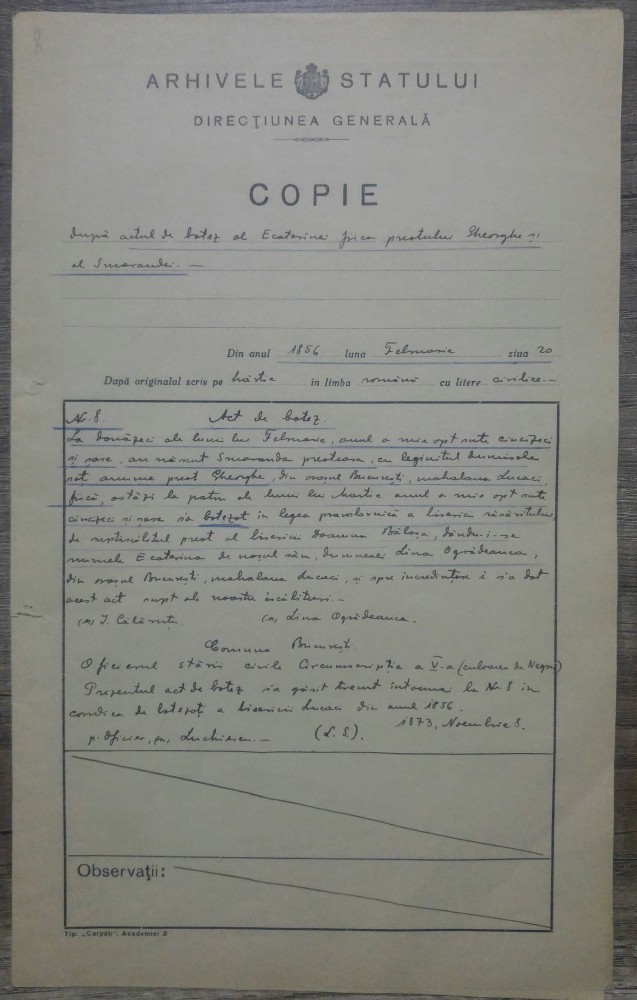 8
ARHIVELE STATULUI
DIRECȚIUNEA GENERALĂ
COPIE
după actul de botez al Ecaterinei fiica preotului Gheorghe și
al Smarandei. —
Din anul 1856 luna Februarie ziua 20
După originalul scris pe hârtie în limba română cu litere civilice. —
Nr. 8. Act de botez.
La douăzeci ale lunii lui Februarie, anul o mie opt sute cincizeci
și șase, au născut Smaranda preoteasa, cu legiuitul dumisale
soț anume preot Gheorghe, din orașul București, mahalaua Lucaci,
fiică, astăzi la patru ale lunii lui Martie anul o mie opt sute
cincizeci și șase s'a botezat în legea pravoslavnică a bisericii răsăritului
de preot al bisericii Ioanna Bălașa, dându-i-se
numele Ecaterina de nașul său, dumneaei Lina Ogrădeanca,
din orașul București, mahalaua Lucaci, și spre încredințare i s'a dat
acest act supt ale noastre iscălituri. —
(ss) I. (ss) Lina Ogrădeanca.
Comuna București.
Oficerul stării civile Circumscripția a V-a (culoarea de Negru)
Prezentul act de botez s'a găsit trecut întocmai la Nr 8 în
condica de botezați a bisericii Lucaci din anul 1856.
1873, Noembrie 8.
p. Oficier, (ss) (L. S.).
Observații:
Tip. „Carpați", Academiei 2